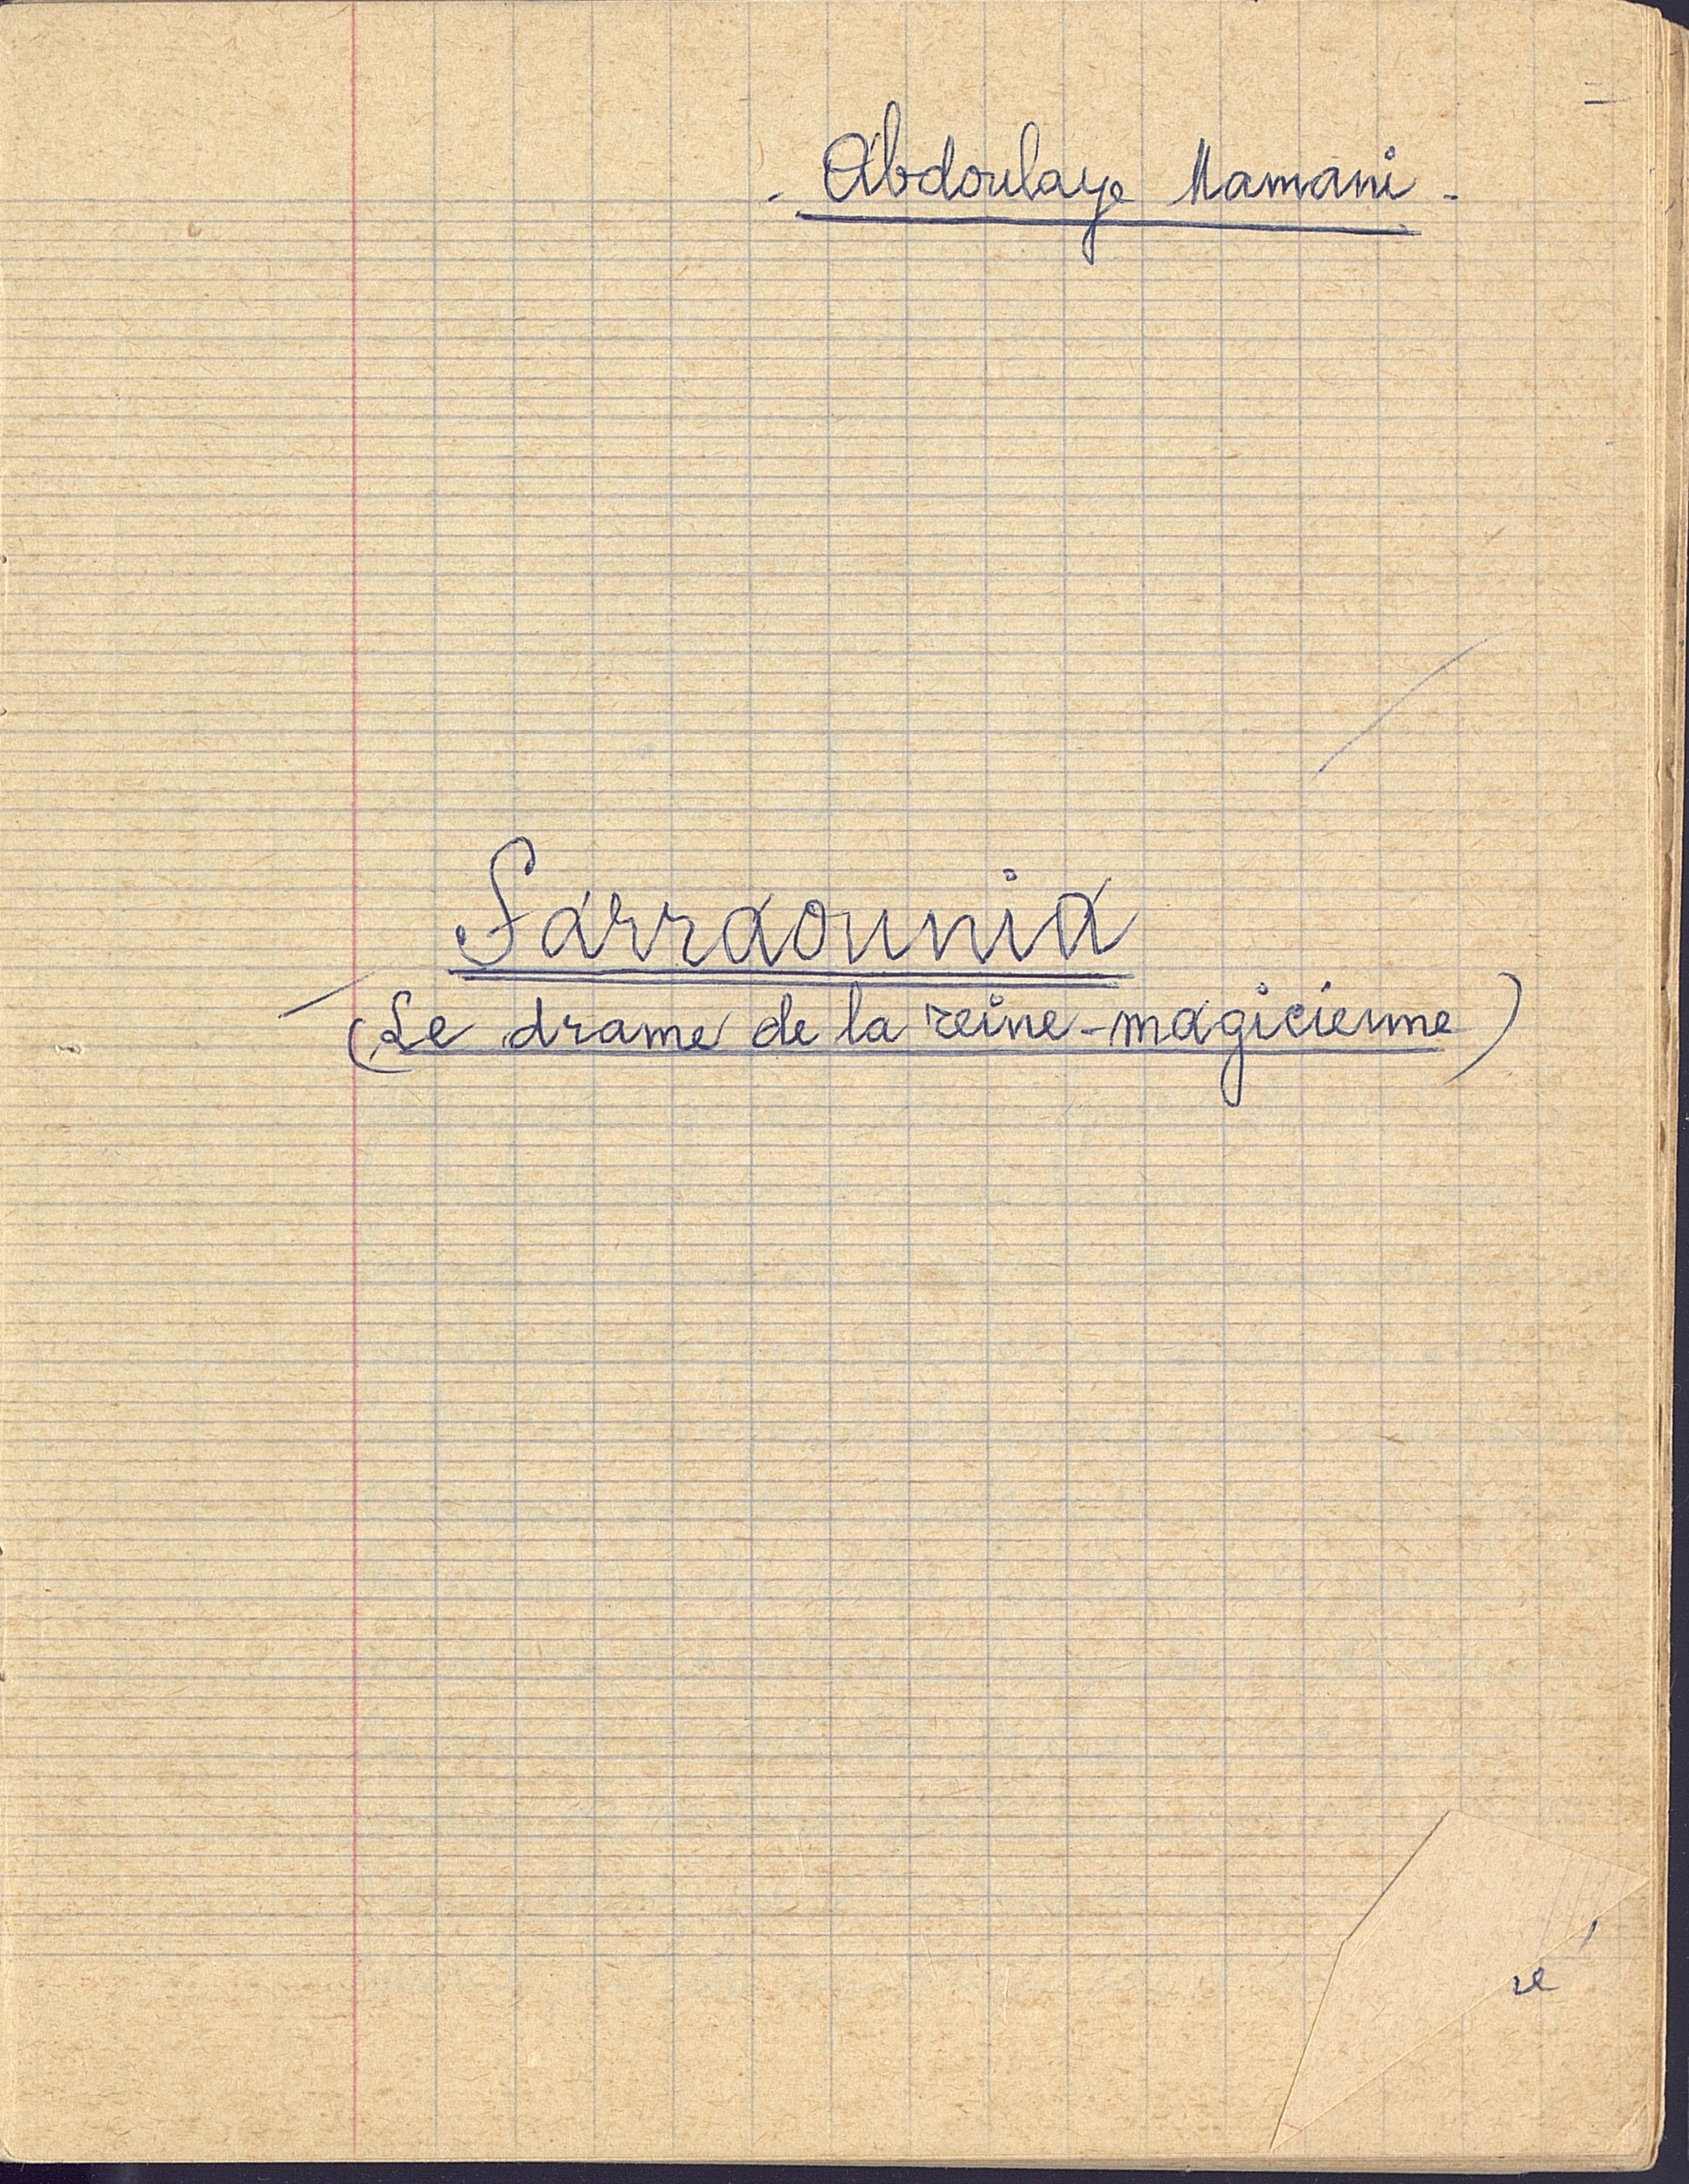 - Abdoulaye Mamani -
Sarraounia
(Le drame de la reine-magicienne)